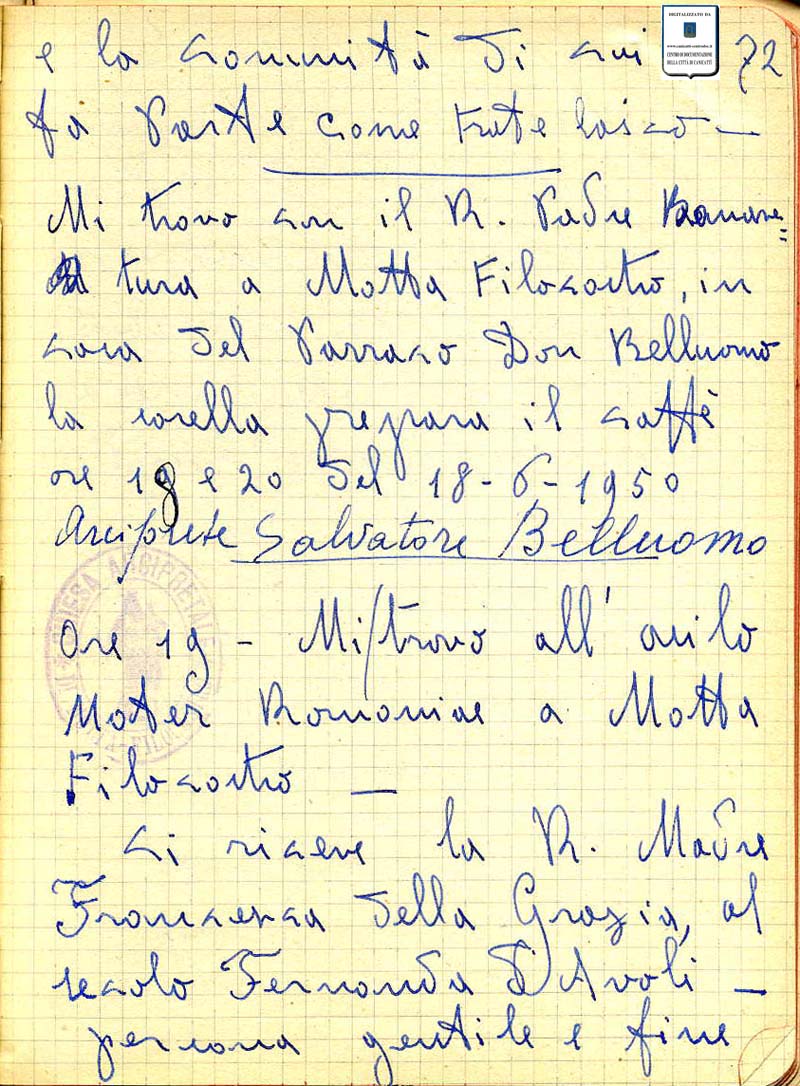 e la comunità di cui 72
DIGITALIZZATO DA
CENTRO DI DOCUMENTAZIONE
DELLA CITTÀ DI CANICATTÌ
fa parte come frate laico —
Mi trovo con il R. Padre Bonaven=
tura a Motta Filocastro, in
casa del Parraco Don Belluomo
la sorella prepara il caffè
ore 18 e 20 del 18-6-1950
Arciprete Salvatore Belluomo
CHIESA ARCIPRETALE
Ore 19 - Mi trovo all' asilo
Mater Romaniae a Motta
Filocastro —
Ci riceve la R. Madre
Francesca della Grazia, al
secolo Fernanda D'Avoli —
persona gentile e fine